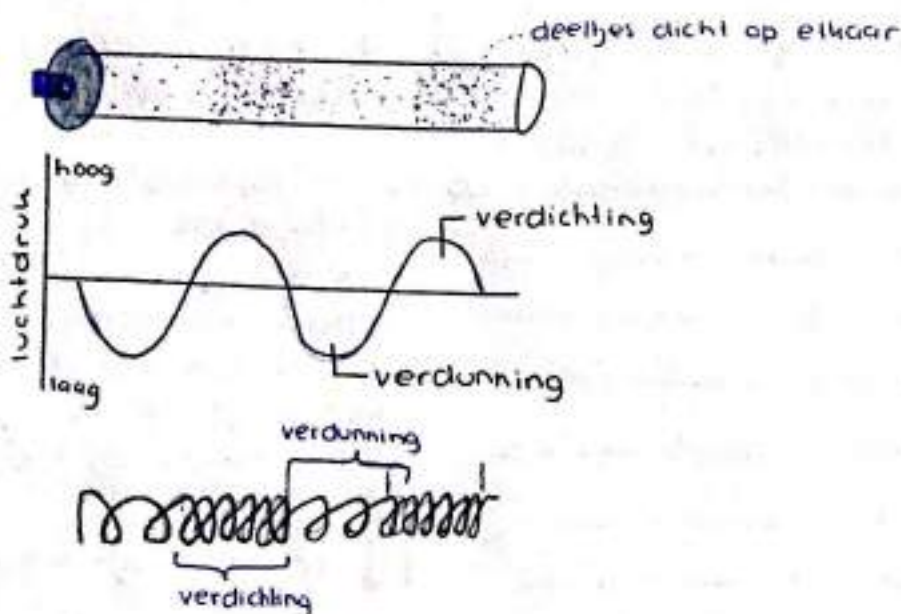 deeltjes dicht op elkaar
hoog
luchtdruk
verdichting
laag
verdunning
verdunning
verdichting